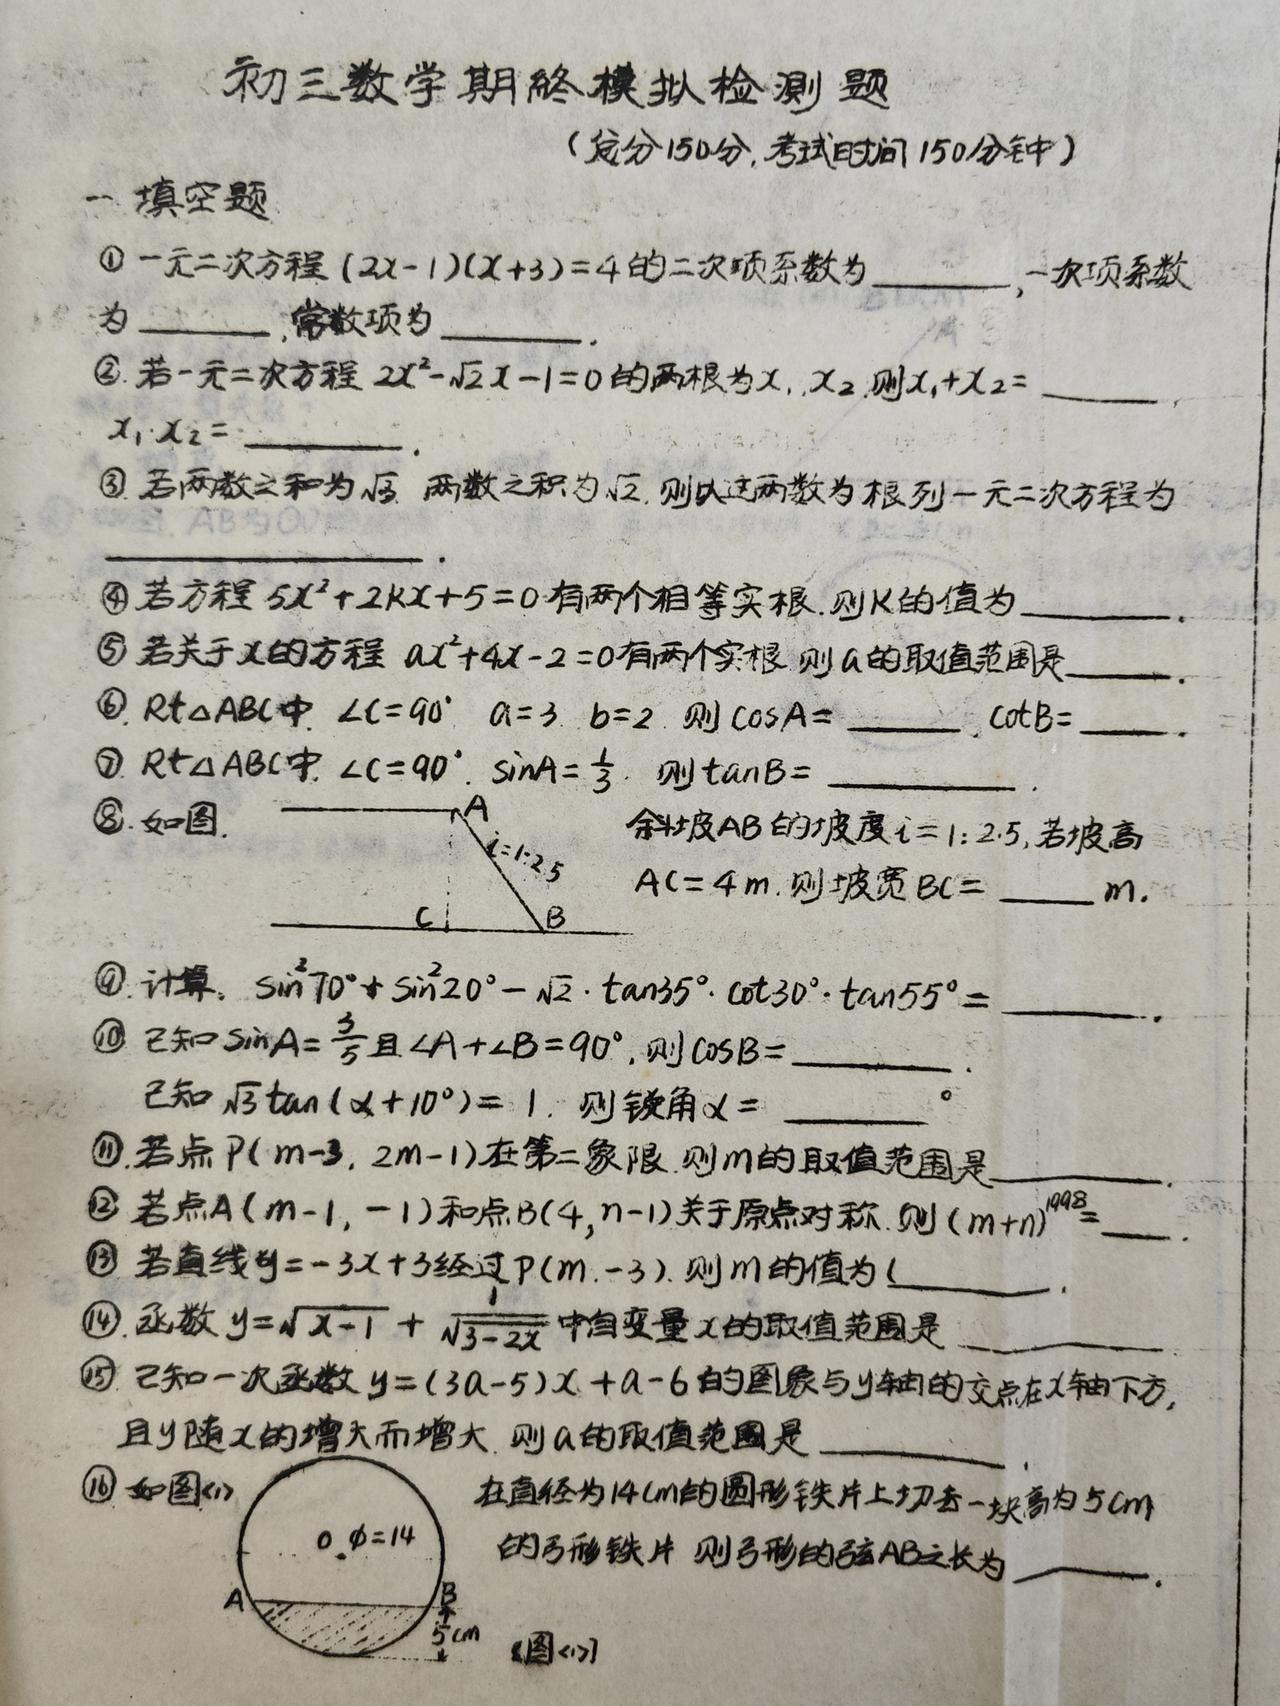 初三数学期终模拟检测题
(总分150分,考试时间150分钟中)
一 填空题
① 一元二次方程(2x-1)(x+3)=4的二次项系数为______,一次项系数
为______,常数项为______.
②.若一元二次方程 2x²-√2x-1=0的两根为x₁,x₂.则x₁+x₂=______,
x₁·x₂=______.
③.若两数之和为√3.两数之积为√2.则以这两数为根列一元二次方程为
______.
④若方程5x²+2kx+5=0有两个相等实根.则K的值为______.
⑤若关于x的方程 ax²+4x-2=0有两个实根 则a的取值范围是______.
⑥.Rt△ABC中.∠C=90° a=3 b=2 则cosA=______.cotB=______.
⑦.Rt△ABC中.∠C=90°.sinA=1/3.则tanB=______.
⑧.如图. 斜坡AB的坡度i=1:2.5,若坡高
AC=4m.则坡宽BC=______m.
A
i=1:2.5
C B
⑨.计算. sin²70°+sin²20°-√2·tan35°·cot30°·tan55°=______.
⑩.已知sinA=3/5且∠A+∠B=90°,则cosB=______.
已知√3tan(α+10°)=1. 则锐角α=______°
⑪.若点P(m-3, 2m-1)在第二象限.则m的取值范围是______.
⑫ 若点A(m-1,-1)和点B(4,n-1)关于原点对称.则(m+n)¹⁹⁹⁸=______.
⑬ 若直线y=-3x+3经过P(m.-3).则m的值为(______.
⑭.函数y=√(x-1)+1/√(3-2x)中自变量x的取值范围是______.
⑮.已知一次函数y=(3a-5)x+a-6的图象与y轴的交点在x轴下方,
且y随x的增大而增大.则a的取值范围是______.
⑯ 如图<1> 在直径为14cm的圆形铁片上切去一块高为5cm
的弓形铁片 则弓形的弦AB之长为______.
O φ=14
A B
5cm
(图<1>)